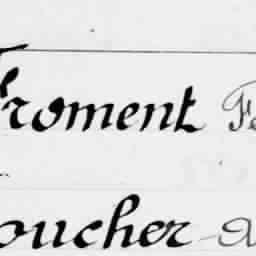 Froment
oucher